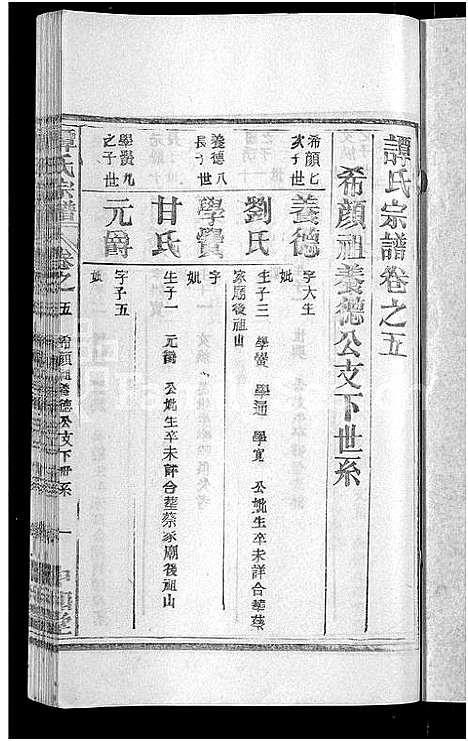 譚氏宗譜卷之五
希顏祖養德公支下世系
希顏七
次子世
養德
字大生
妣
劉氏
生子三 學蠻 學通 學寬 公妣生卒未詳合葬蔡
家廟後祖山
養德八
長子世
學蠻
字
妣
甘氏
生子一 元爵 公妣生卒未詳合葬蔡家廟後祖山
學蠻九
之子世
元爵
字予五
妣
譚氏宗譜
卷之五
希顏祖養德公支下世系
一